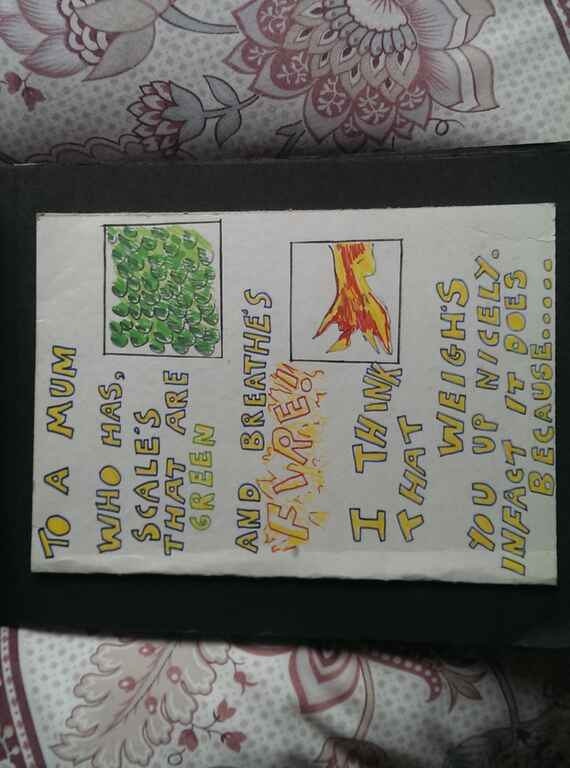 TO A MUM
WHO HAS,
SCALE'S
THAT ARE
GREEN
AND BREATHE'S
FIRE!!
I THINK
THAT WEIGH'S
YOU UP NICELY.
INFACT IT DOES
BECAUSE.....